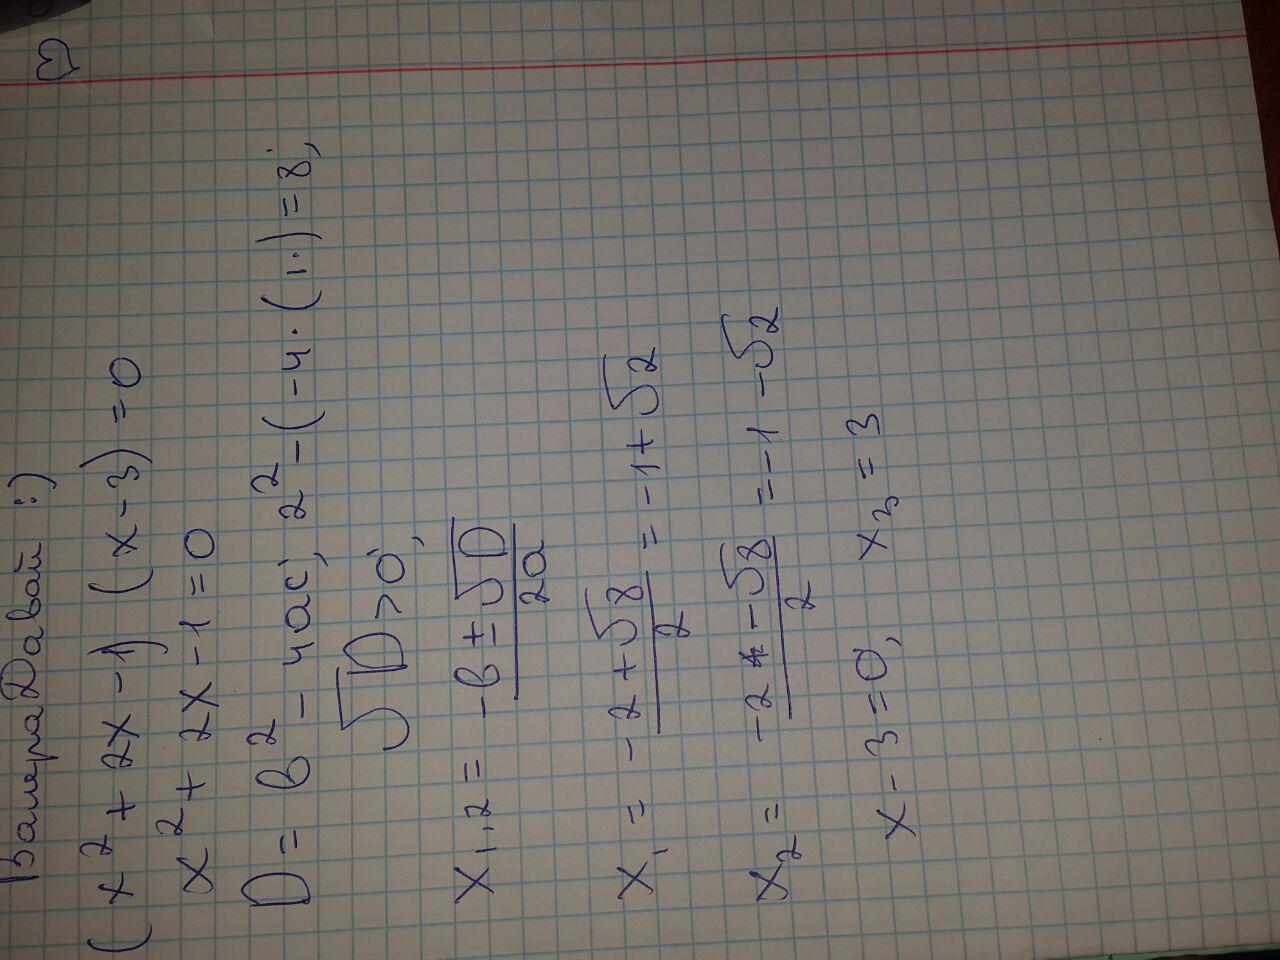 Валера Давай :)
(x² + 2x - 1) (x - 3) = 0
x² + 2x - 1 = 0
D = b² - 4ac; 2² - (-4 · (1·) = 8;
√D > 0;
x₁,₂ = (-b ± √D) / 2a
x₁ = (-2 + √8) / 2 = -1 + √2
x₂ = (-2 - √8) / 2 = -1 - √2
x - 3 = 0; x₃ = 3